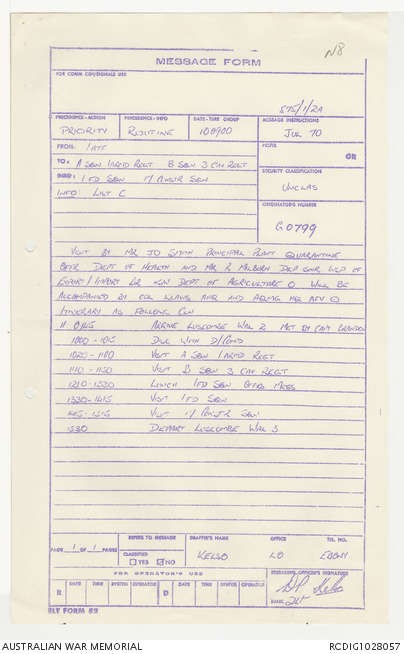 N8
MESSAGE FORM
FOR COMM CEN/SIGNALS USE
575/1/2A
PRECEDENCE-ACTION PRECEDENCE-INFO DATE-TIME GROUP MESSAGE INSTRUCTIONS
PRIORITY ROUTINE 100900 JUL 70
FROM: 1 ATF
TO: A SQN 1 ARMD REGT B SQN 3 CAV REGT
1 FD SQN 17 SQN
INFO LIST C
OR
SECURITY CLASSIFICATION
UNCLAS
ORIGINATOR'S NUMBER
G0799
VISIT BY MR JD SMITH PRINCIPAL PLANT QUARANTINE
OFFR DEPT OF HEALTH AND MR R MILBORN INSP OF
EXPORT/IMPORT DEPT OF AGRICULTURE O WILL BE
ACCOMPANIED BY COL AND HQ AFV O
ITINERARY AS FOLLOWS CLN
ARRIVE LUSCOMBE MET BY CAPT
1000 - 1015 DISC WITH D/COMD
1020 - 1100 VISIT A SQN 1 ARMD REGT
1110 - 1150 VISIT B SQN 3 CAV REGT
1210 - 1330 LUNCH 1 FD SQN OFFRS MESS
1330 - 1415 VISIT 1 FD SQN
VISIT 17 SQN
1530 DEPART LUSCOMBE
PAGE 1 OF 1 PAGES
REFERS TO MESSAGE DRAFTER'S NAME OFFICE TEL. NO.
CLASSIFIED
YES NO
KELSO LO EBONY
FOR OPERATOR'S USE
R DATE TIME SYSTEM OPERATOR D DATE TIME SYSTEM OPERATOR
RELEASING OFFICER'S SIGNATURE
AUSTRALIAN WAR MEMORIAL
RCDIG1028057